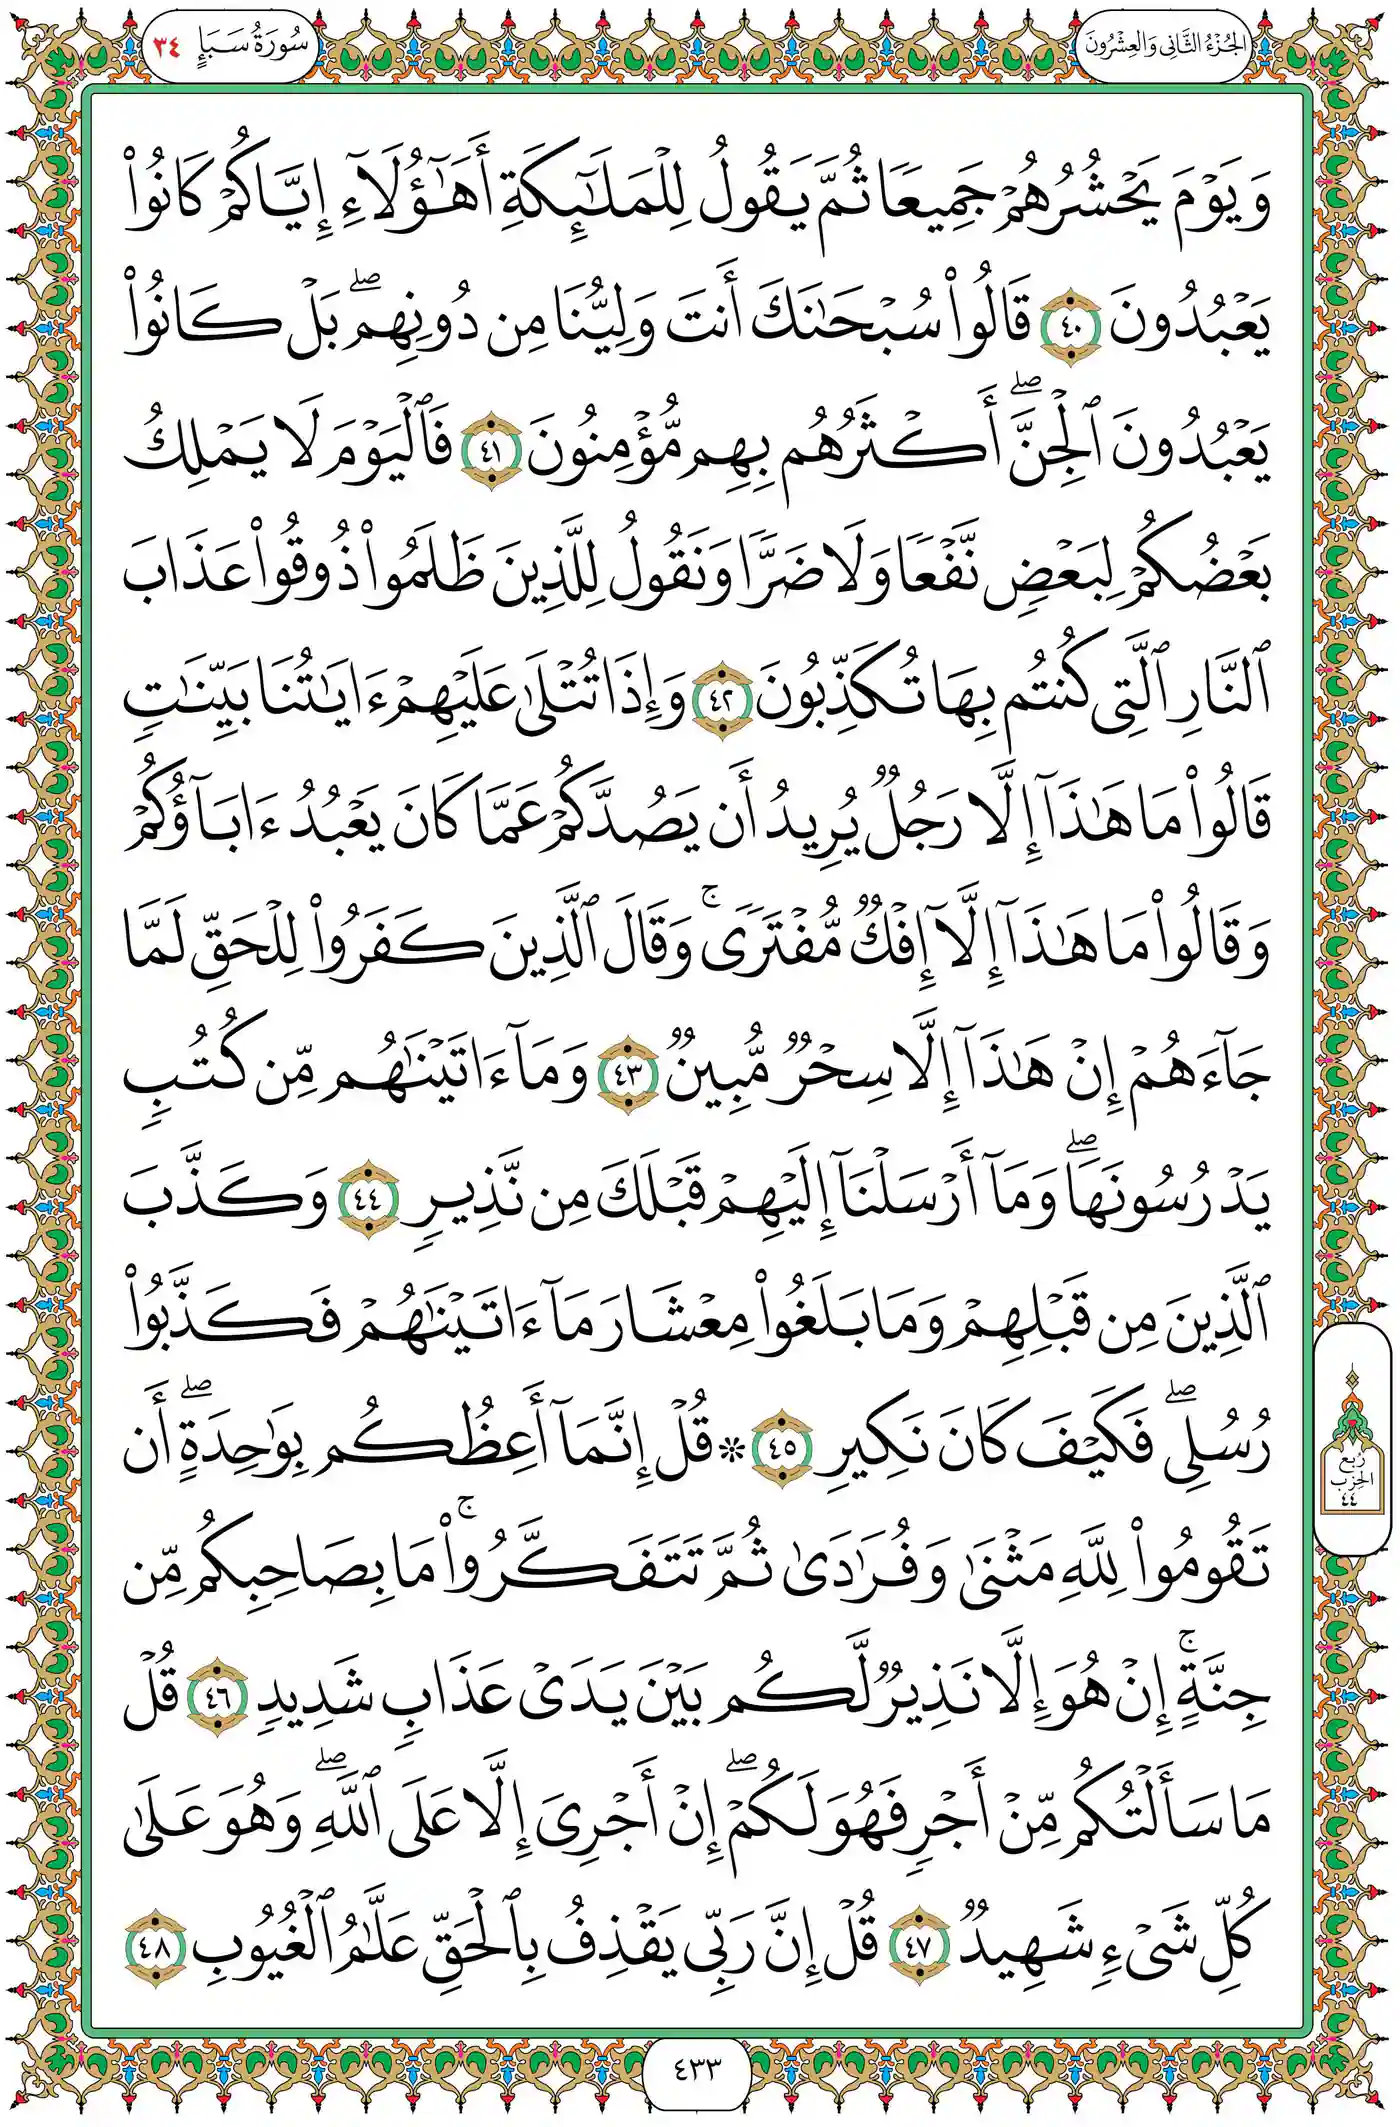 الجُزْءُ الثَّانِي وَالعِشْرُونَ
سُورَةُ سَبَإٍ ٣٤
وَيَوْمَ يَحْشُرُهُمْ جَمِيعًا ثُمَّ يَقُولُ لِلْمَلَٰٓئِكَةِ أَهَٰٓؤُلَآءِ إِيَّاكُمْ كَانُوا۟
يَعْبُدُونَ ٤٠ قَالُوا۟ سُبْحَٰنَكَ أَنتَ وَلِيُّنَا مِن دُونِهِم ۖ بَلْ كَانُوا۟
يَعْبُدُونَ ٱلْجِنَّ ۖ أَكْثَرُهُم بِهِم مُّؤْمِنُونَ ٤١ فَٱلْيَوْمَ لَا يَمْلِكُ
بَعْضُكُمْ لِبَعْضٍ نَّفْعًا وَلَا ضَرًّا وَنَقُولُ لِلَّذِينَ ظَلَمُوا۟ ذُوقُوا۟ عَذَابَ
ٱلنَّارِ ٱلَّتِى كُنتُم بِهَا تُكَذِّبُونَ ٤٢ وَإِذَا تُتْلَىٰ عَلَيْهِمْ ءَايَٰتُنَا بَيِّنَٰتٍ
قَالُوا۟ مَا هَٰذَآ إِلَّا رَجُلٌ يُرِيدُ أَن يَصُدَّكُمْ عَمَّا كَانَ يَعْبُدُ ءَابَآؤُكُمْ
وَقَالُوا۟ مَا هَٰذَآ إِلَّآ إِفْكٌ مُّفْتَرًى ۚ وَقَالَ ٱلَّذِينَ كَفَرُوا۟ لِلْحَقِّ لَمَّا
جَآءَهُمْ إِنْ هَٰذَآ إِلَّا سِحْرٌ مُّبِينٌ ٤٣ وَمَآ ءَاتَيْنَٰهُم مِّن كُتُبٍ
يَدْرُسُونَهَا ۖ وَمَآ أَرْسَلْنَآ إِلَيْهِمْ قَبْلَكَ مِن نَّذِيرٍ ٤٤ وَكَذَّبَ
ٱلَّذِينَ مِن قَبْلِهِمْ وَمَا بَلَغُوا۟ مِعْشَارَ مَآ ءَاتَيْنَٰهُمْ فَكَذَّبُوا۟
رُسُلِى ۖ فَكَيْفَ كَانَ نَكِيرِ ٤٥ ۞ قُلْ إِنَّمَآ أَعِظُكُم بِوَٰحِدَةٍ ۖ أَن
تَقُومُوا۟ لِلَّهِ مَثْنَىٰ وَفُرَٰدَىٰ ثُمَّ تَتَفَكَّرُوا۟ ۚ مَا بِصَاحِبِكُم مِّن
جِنَّةٍ ۚ إِنْ هُوَ إِلَّا نَذِيرٌ لَّكُم بَيْنَ يَدَىْ عَذَابٍ شَدِيدٍ ٤٦ قُلْ
مَا سَأَلْتُكُم مِّنْ أَجْرٍ فَهُوَ لَكُمْ ۖ إِنْ أَجْرِىَ إِلَّا عَلَى ٱللَّهِ ۖ وَهُوَ عَلَىٰ
كُلِّ شَىْءٍ شَهِيدٌ ٤٧ قُلْ إِنَّ رَبِّى يَقْذِفُ بِٱلْحَقِّ عَلَّٰمُ ٱلْغُيُوبِ ٤٨
رُبْع
الحِزْب
٤٤
٤٣٣